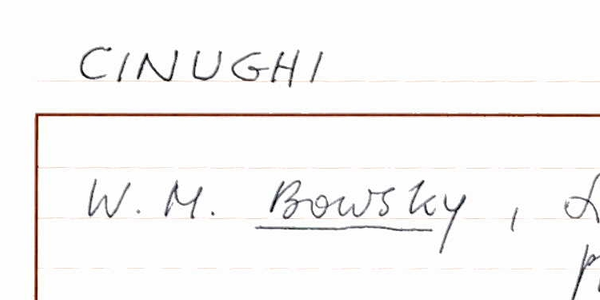 CINUGHI
W. M. Bowsky,